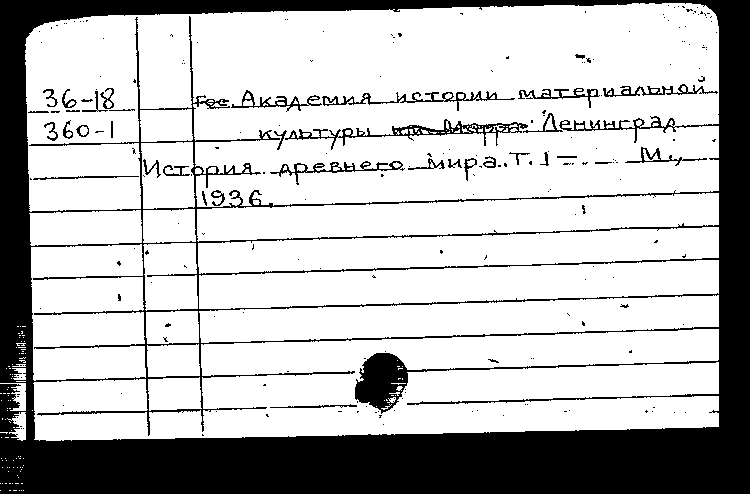 36-18 Гос. Академия истории материальной
360-1 культуры им. Марра. Ленинград
История древнего мира. Т. 1 - . М.,
1936.